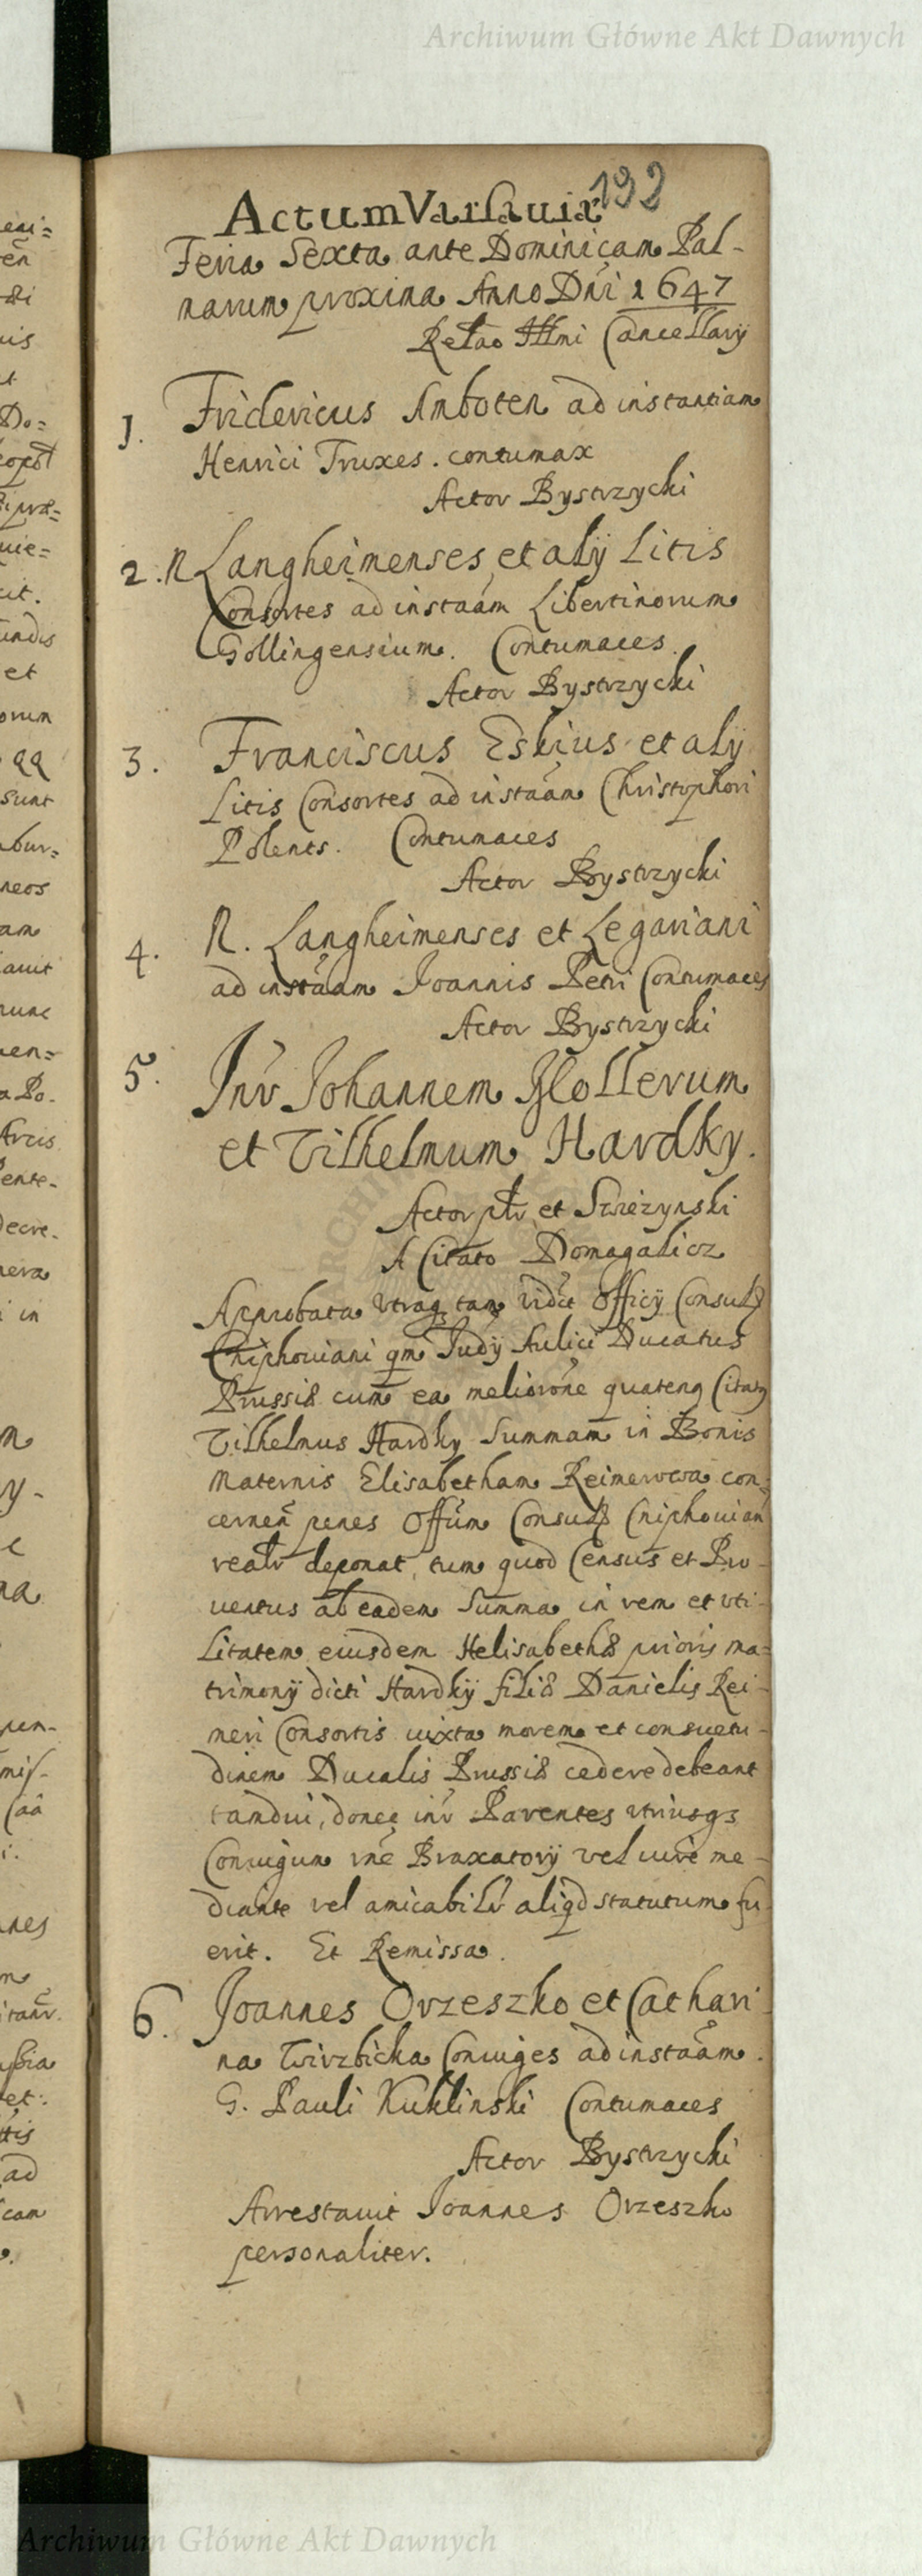 Archiwum Główne Akt Dawnych
192
Actum Varsauiæ
Feria Sexta ante Dominicam Pal-
marum proxima Anno Dni 1647
Relao Illmi Cancellarij
1. Fridericus Amboten ad instantiam
Henrici Truxes. contumax
Actor Bystrzycki
2. N Langheimenses et alij Litis
Consortes ad instaam Libertinorum
Gollingensium. Contumaces.
Actor Bystrzycki
3. Franciscus Eskius et alij
Litis Consortes ad instaam Christophori
Polents. Contumaces
Actor Bystrzycki
4. N. Langheimenses et Legariani
ad instaam Joannis Petri Contumaces
Actor Bystrzycki
5. Inr Johannem Glollerum
et Vilhelmum Hardky.
Actor et
A Citato Domagalicz
Approbata vtraq tam Officij Consul
Cniphouiani qm Judij Aulici Ducatus
Prussiæ cum ea meliorone quateng Citatg
Vilhelmus Hardky Summam in Bonis
Maternis Elisabetham con-
cernen penes Offum Consul Cniphouian
realr deponat, tum quod Census et Pro-
uentus ab eadem Summa in rem et vti-
litatem eiusdem Helisabethæ prioris ma-
trimonij dicti Hardkij filiæ Danielis Rei-
meri Consortis iuxta morem et consuetu-
dinem Ducalis Prussiæ cedere debeant
tamdiu, donec inr Parentes vtriusqs
Coniugum rne Braxatorij vel iure me-
diante vel amicabilr aliqd statutum fu-
erit. Et Remissa.
6. Joannes Orzeszko et Cathari-
na Wirzbicka Coniuges ad instaam.
G. Pauli Kuklinski Contumaces
Actor Bystrzycki
Arrestauit Joannes Orzeszko
personaliter.
Archiwum Główne Akt Dawnych